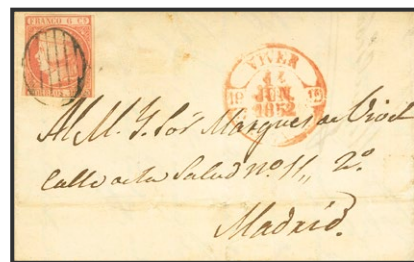 FRANCO 6 Cs
VIVER
JUN.
1852
Al M. Y. Sor Marques de
Calle de la Salud no. 11,, 2o.
Madrid.